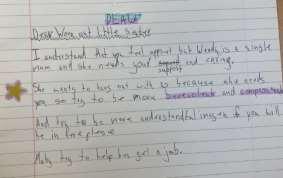 DEALT
Dear Worm and little sister
I understand that you feel upset but Wendy is a single
mum and she needs your support and caring.
She wants to hang out with u because she needs
you so try to be more benevolent and compassionate
And try to be more understandful imagen if you will
be in her place
Maby try to help her get a job.